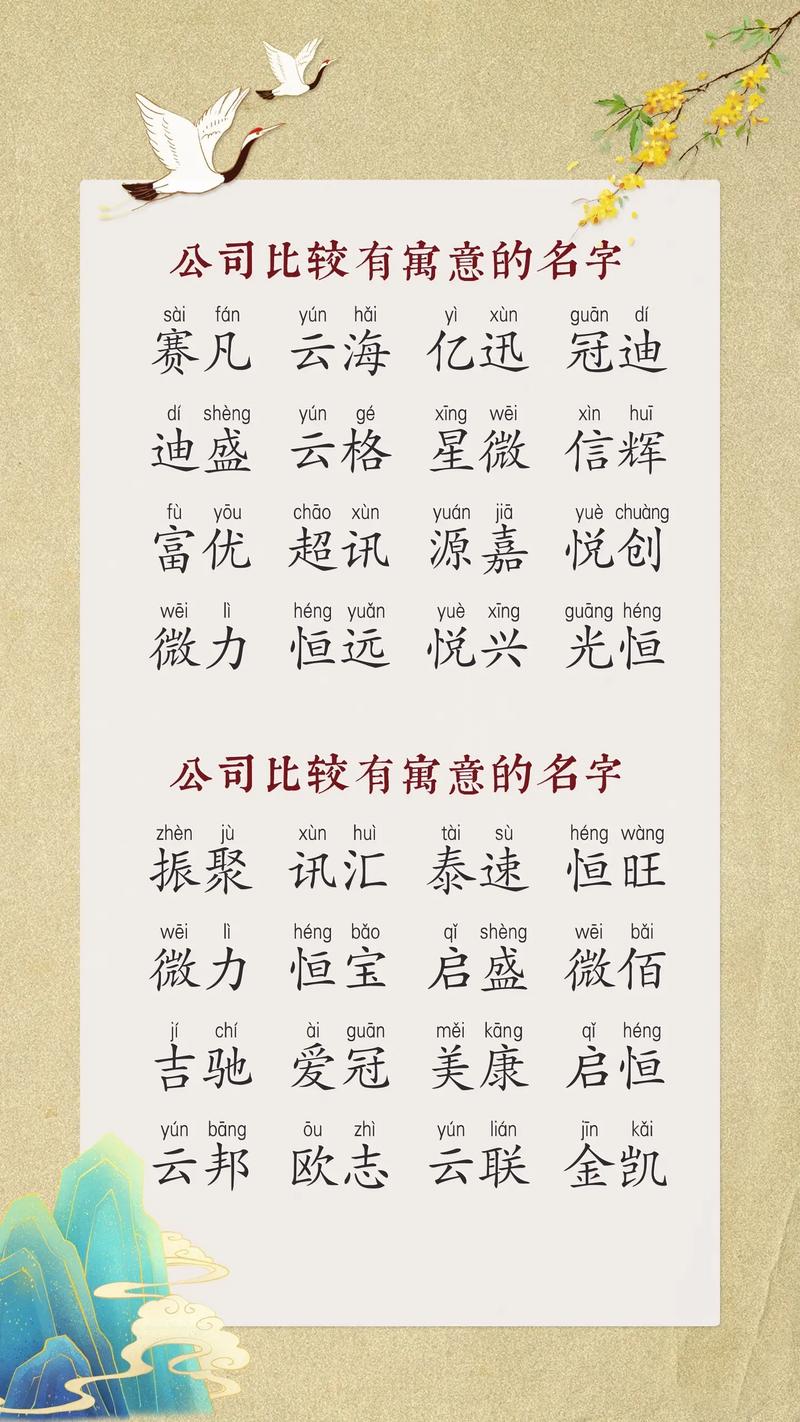 公司比较有寓意的名字
sài fán yún hǎi yì xùn guān dí
赛凡 云海 亿迅 冠迪
dí shèng yún gé xīng wēi xìn huī
迪盛 云格 星微 信辉
fù yōu chāo xùn yuán jiā yuè chuàng
富优 超讯 源嘉 悦创
wēi lì héng yuǎn yuè xīng guāng héng
微力 恒远 悦兴 光恒
公司比较有寓意的名字
zhèn jù xùn huì tài sù héng wàng
振聚 讯汇 泰速 恒旺
wēi lì héng bǎo qǐ shèng wēi bǎi
微力 恒宝 启盛 微佰
jí chí ài guān měi kāng qǐ héng
吉驰 爱冠 美康 启恒
yún bāng ōu zhì yún lián jīn kǎi
云邦 欧志 云联 金凯